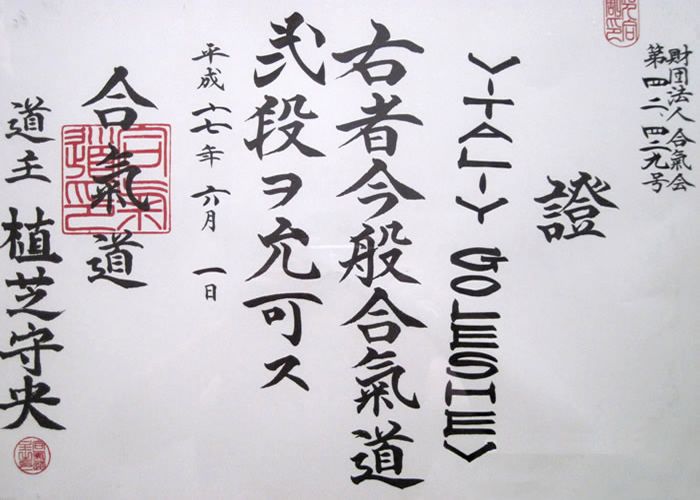 財団法人 合氣会
第四二、四二九号
證
VITALIY GOLESHEV
右者今般合氣道
弐段ヲ允可ス
平成十七年 六月 一日
合氣道
道主 植芝守央